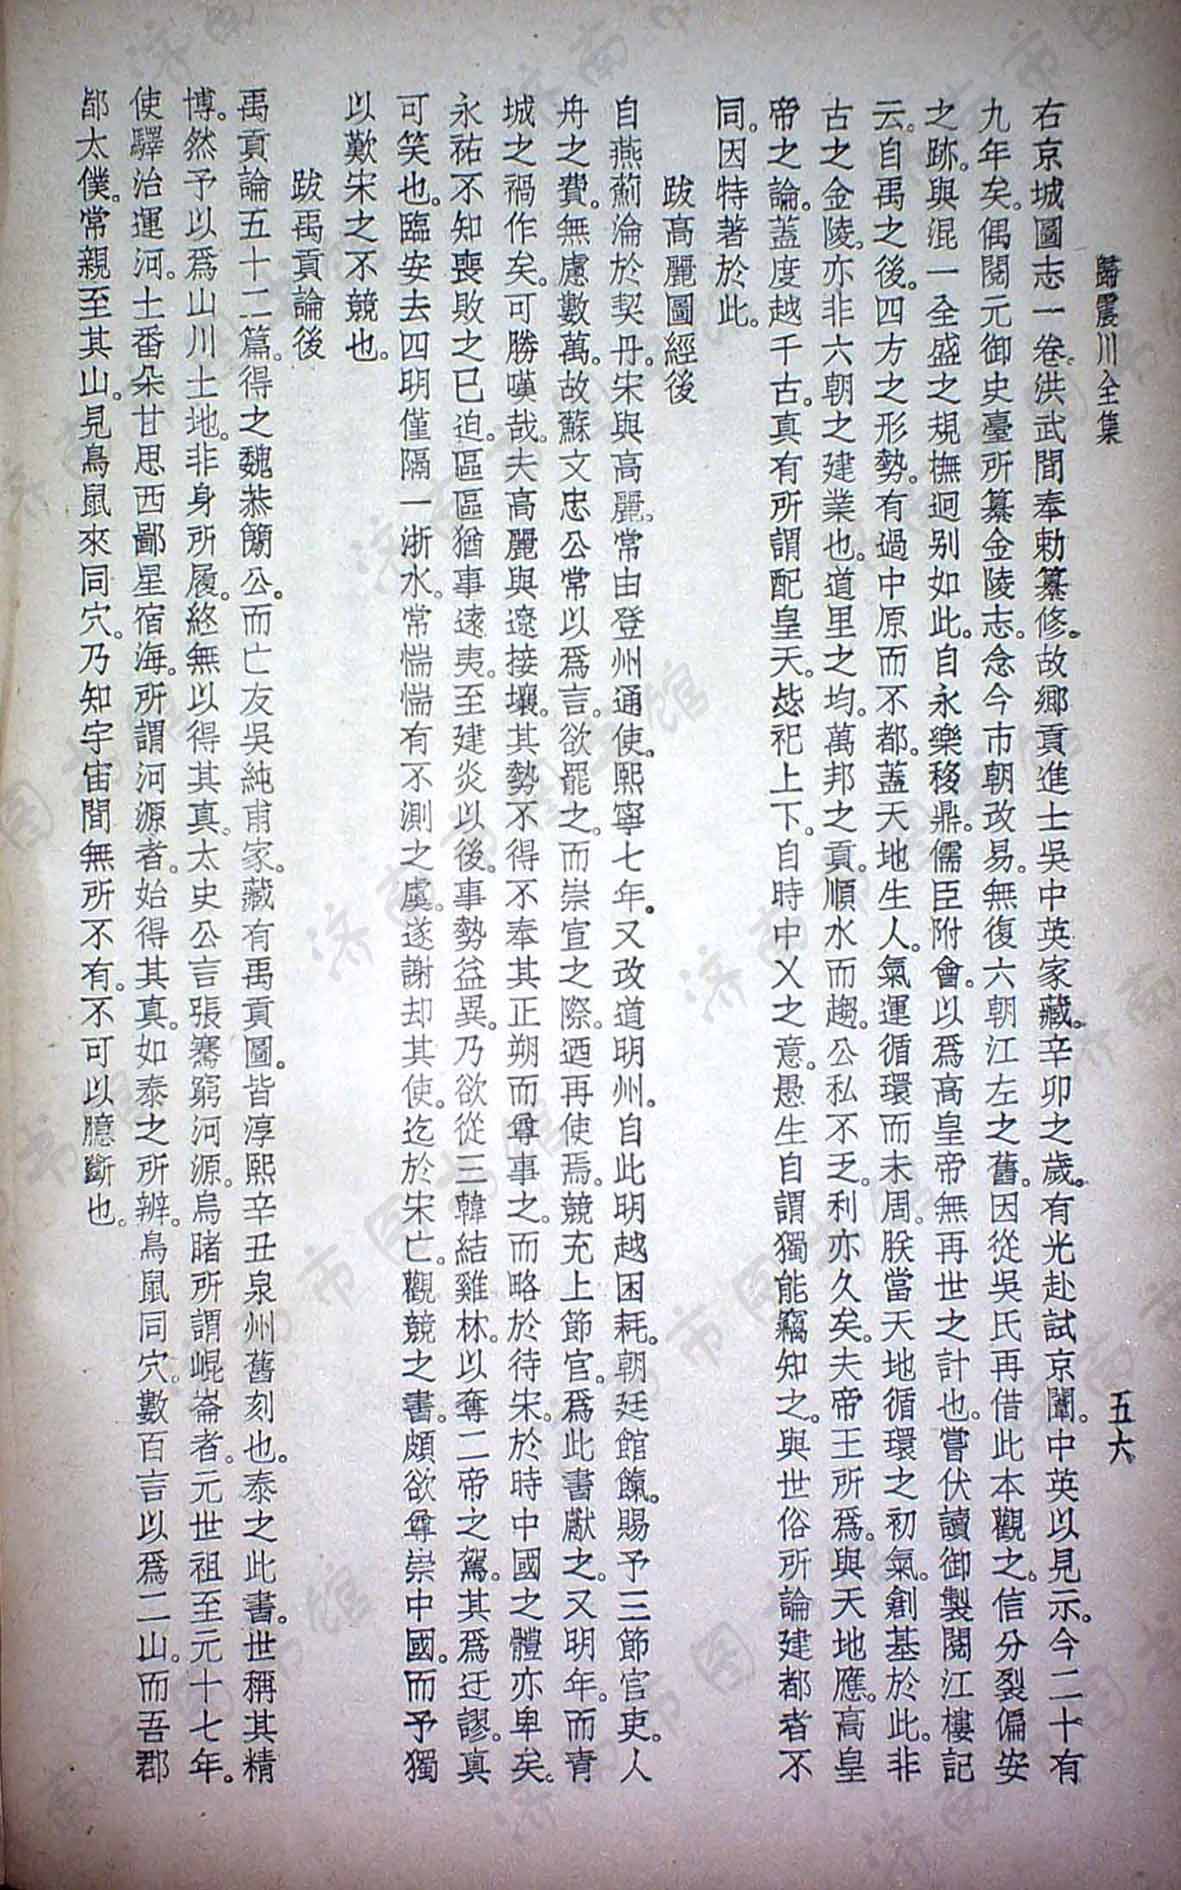 歸震川全集
五六
右京城圖志一卷。洪武間奉勅纂修。故鄉貢進士吳中英家藏。辛卯之歲。有光赴試京闈。中英以見示。今二十有
九年矣。偶閱元御史臺所纂金陵志。念今市朝改易。無復六朝江左之舊。因從吳氏再借此本觀之。信分裂偏安
之跡。與混一全盛之規橅迥别如此。自永樂移鼎。儒臣附會。以爲高皇帝無再世之計也。嘗伏讀御製閱江樓記
云。自禹之後。四方之形勢。有過中原而不都。蓋天地生人。氣運循環而未周。朕當天地循環之初氣。創基於此。非
古之金陵。亦非六朝之建業也。道里之均。萬邦之貢。順水而趨。公私不乏。利亦久矣。夫帝王所爲。與天地應。高皇
帝之論。蓋度越千古。真有所謂配皇天。毖祀上下。自時中乂之意。愚生自謂獨能竊知之。與世俗所論建都者不
同。因特著於此。
跋高麗圖經後
自燕薊淪於契丹。宋與高麗。常由登州通使。熙寧七年。又改道明州。自此明越困耗。朝廷館餼。賜予三節官吏。人
舟之費。無慮數萬。故蘇文忠公常以爲言。欲罷之。而崇宣之際。迺再使焉。競充上節官。爲此書獻之。又明年。而青
城之禍作矣。可勝嘆哉。夫高麗與遼接壤。其勢不得不奉其正朔而尊事之。而略於待宋。於時中國之體亦卑矣。
永祐不知喪敗之已迫。區區猶事遠夷。至建炎以後。事勢益異。乃欲從三韓結雞林。以奪二帝之駕。其爲迂謬。真
可笑也。臨安去四明僅隔一浙水。常惴惴有不測之虞。遂謝却其使。迄於宋亡。觀競之書。頗欲尊崇中國。而予獨
以歎宋之不競也。
跋禹貢論後
禹貢論五十二篇。得之魏恭簡公。而亡友吳純甫家。藏有禹貢圖。皆淳熙辛丑泉州舊刻也。泰之此書。世稱其精
博。然予以爲山川土地。非身所履。終無以得其真。太史公言張騫窮河源。烏睹所謂崐崙者。元世祖至元十七年。
使驛治運河。土番朵甘思西鄙星宿海。所謂河源者。始得其真。如泰之所辨。鳥鼠同穴。數百言以爲二山。而吾郡
郡太僕。常親至其山。見鳥鼠來同穴。乃知宇宙間無所不有。不可以臆斷也。